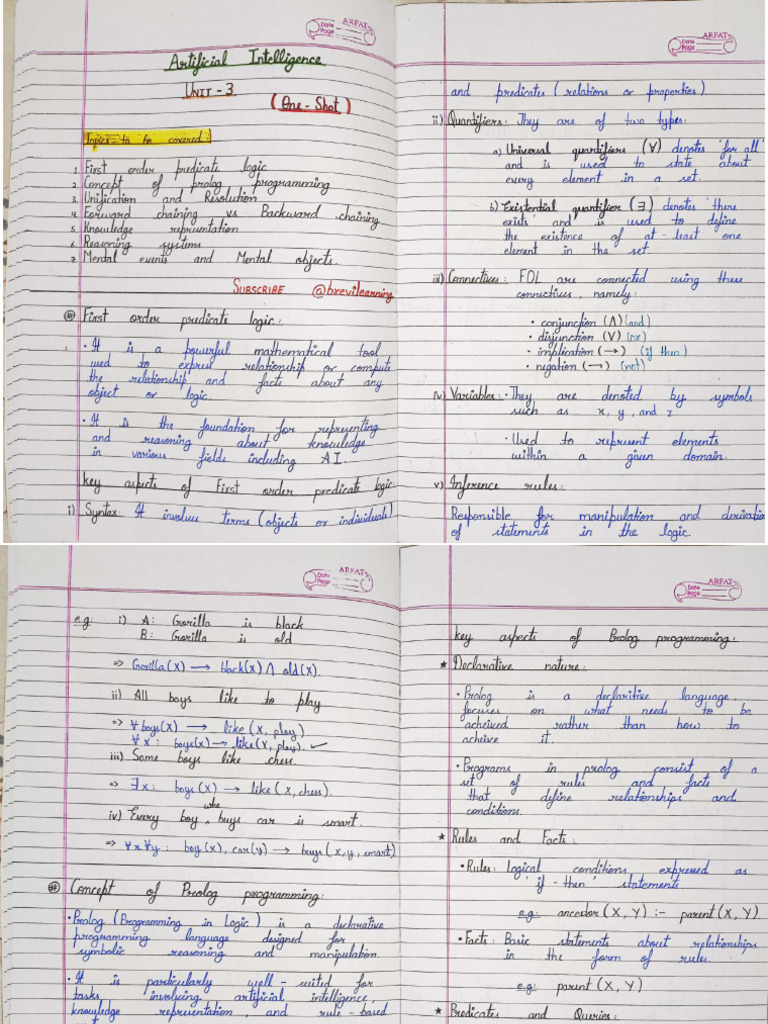 Date
Page
ARFAT
Artificial Intelligence
UNIT - 3
(One - Shot)
Topics to be covered:
1. First order predicate logic
2. Concept of prolog programming
3. Unification and Resolution
4. Forward chaining vs Backward chaining
5. Knowledge representation
6. Reasoning systems
7. Mental events and Mental objects.
SUBSCRIBE @brevilearning
# First order predicate logic:
• It is a powerful mathematical tool
used to express relationship or compute
the relationship and facts about any
object or logic
• It is the foundation for representing
and reasoning about knowledge
in various fields including AI.
key aspects of First order predicate logic:
i) Syntax: It involves terms (objects or individuals)
Date
Page
ARFAT
and predicates (relations or properties)
ii) Quantifiers: They are of two types:
a) Universal quantifiers (∀) denotes 'for all'
and is used to state about
every element in a set.
b) Existential quantifier (∃) denotes 'there
exists' and is used to define
the existence of at-least one
element in the set.
iii) Connectives: FOL are connected using these
connectives, namely:
• conjunction (Λ) (and)
• disjunction (V) (or)
• implication (→) (if then)
• negation (¬) (not)
iv) Variables: • They are denoted by symbols
such as x, y, and z
• Used to represent elements
within a given domain.
v) Inference rules:
Responsible for manipulation and derivatio
of statements in the logic.
Date
Page
ARFAT
e.g: i) A: Gorilla is black
B: Gorilla is old
⇒ Gorilla(X) → black(X) Λ old(X).
ii) All boys like to play
⇒ ∀ boys(X) → like (X, play)
∀ X : boys(X) → like(X, play). ✓
iii) Some boys like chess.
⇒ ∃ x : boys (X) → like (X, chess).
who
iv) Every boy ^ buys car is smart.
⇒ ∀x∀y : boy(x), car(y) → buys(x, y, smart)
# Concept of Prolog programming:
• Prolog (Programming in Logic) is a declarative
programming language designed for
symbolic reasoning and manipulation.
• It is particularly well-suited for
tasks involving artificial intelligence,
knowledge representation, and rule-based
Date
Page
ARFAT
key aspects of Prolog programming:
★ Declarative nature:
• Prolog is a declaritive language,
focuses on what needs to be
acheived rather than how to
achieve it.
• Programs in prolog consist of a
set of rules and facts
that define relationships and
conditions.
★ Rules and Facts:
• Rules: Logical conditions expressed as
'if - then' statements
e.g: ancestor(X, Y) :- parent(X, Y)
• Facts: Basic statements about relationships
in the form of rules.
e.g: parent (X, Y)
★ Predicates and Queries: